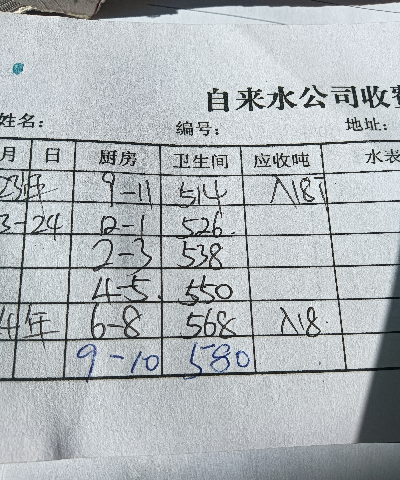 自来水公司收费
姓名： 编号： 地址：
月 日 厨房 卫生间 应收吨 水表
23年 9-11 514 入18T
3-24 12-1 526
2-3 538
4-5. 550
4年 6-8 568 入18.
9-10 580